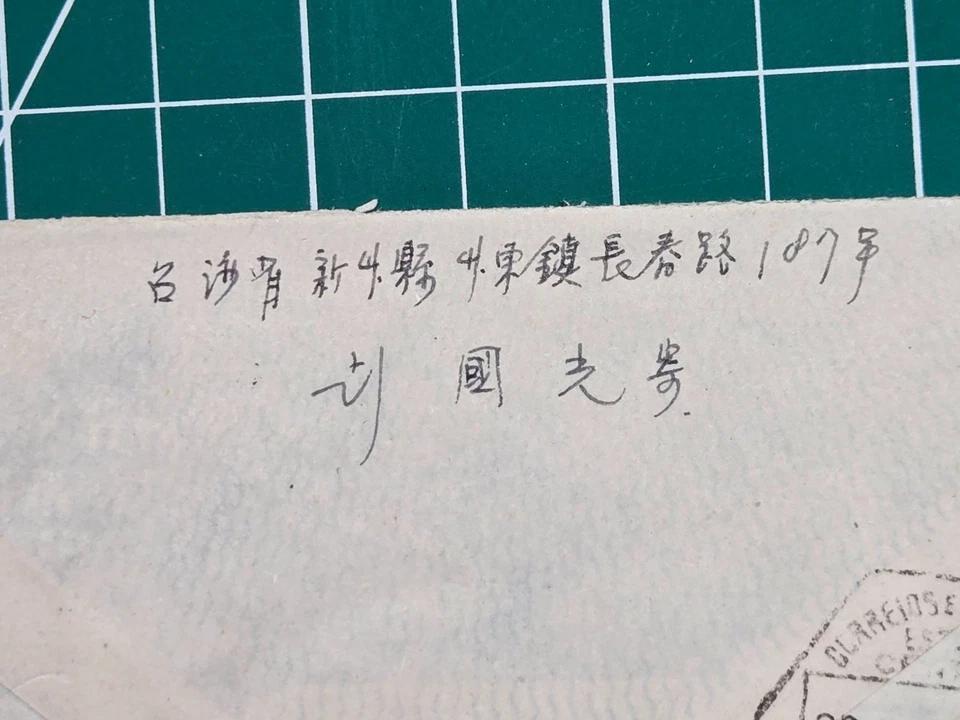 台湾省新竹縣竹東鎮長春路187号
國光寄
CORREIOS E